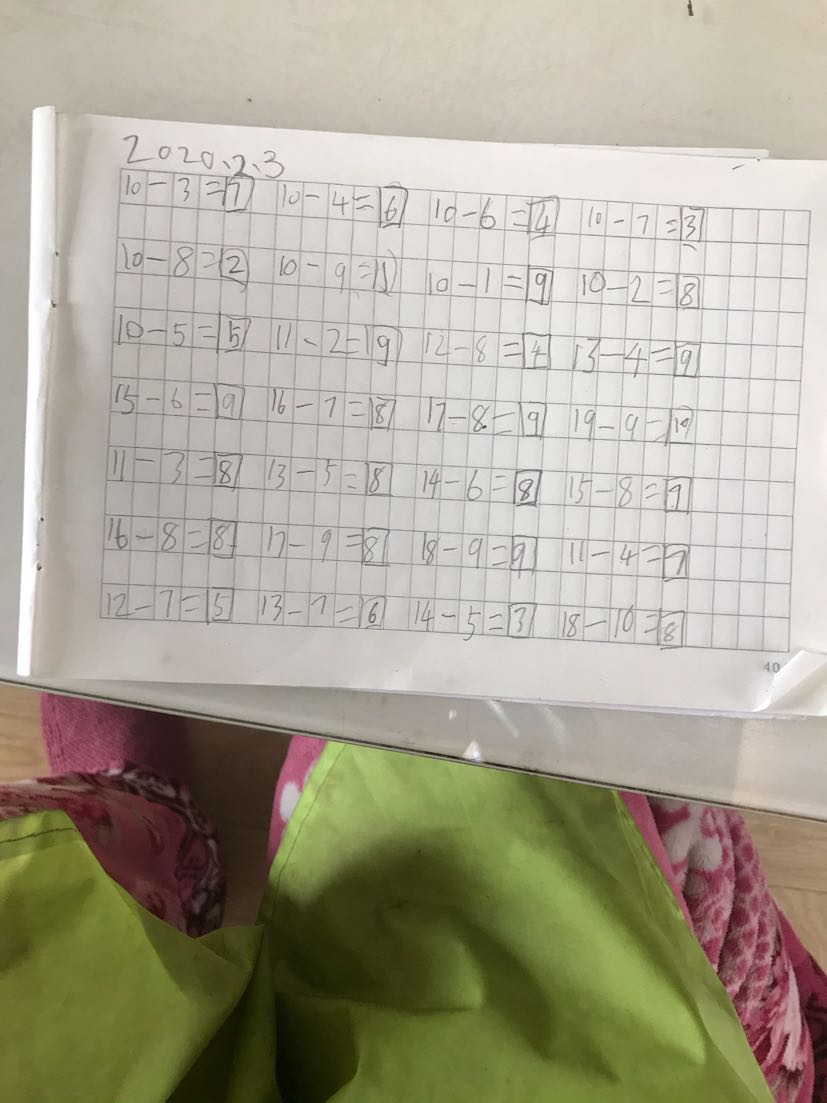 2020.2.3
10-3=7 10-4=6 10-6=4 10-7=3
10-8=2 10-9=1 10-1=9 10-2=8
10-5=5 11-2=9 12-8=4 13-4=9
15-6=9 16-7=8 17-8=9 19-9=10
11-3=8 13-5=8 14-6=8 15-8=7
16-8=8 17-9=8 18-9=9 11-4=7
12-7=5 13-7=6 14-5=3 18-10=8
40